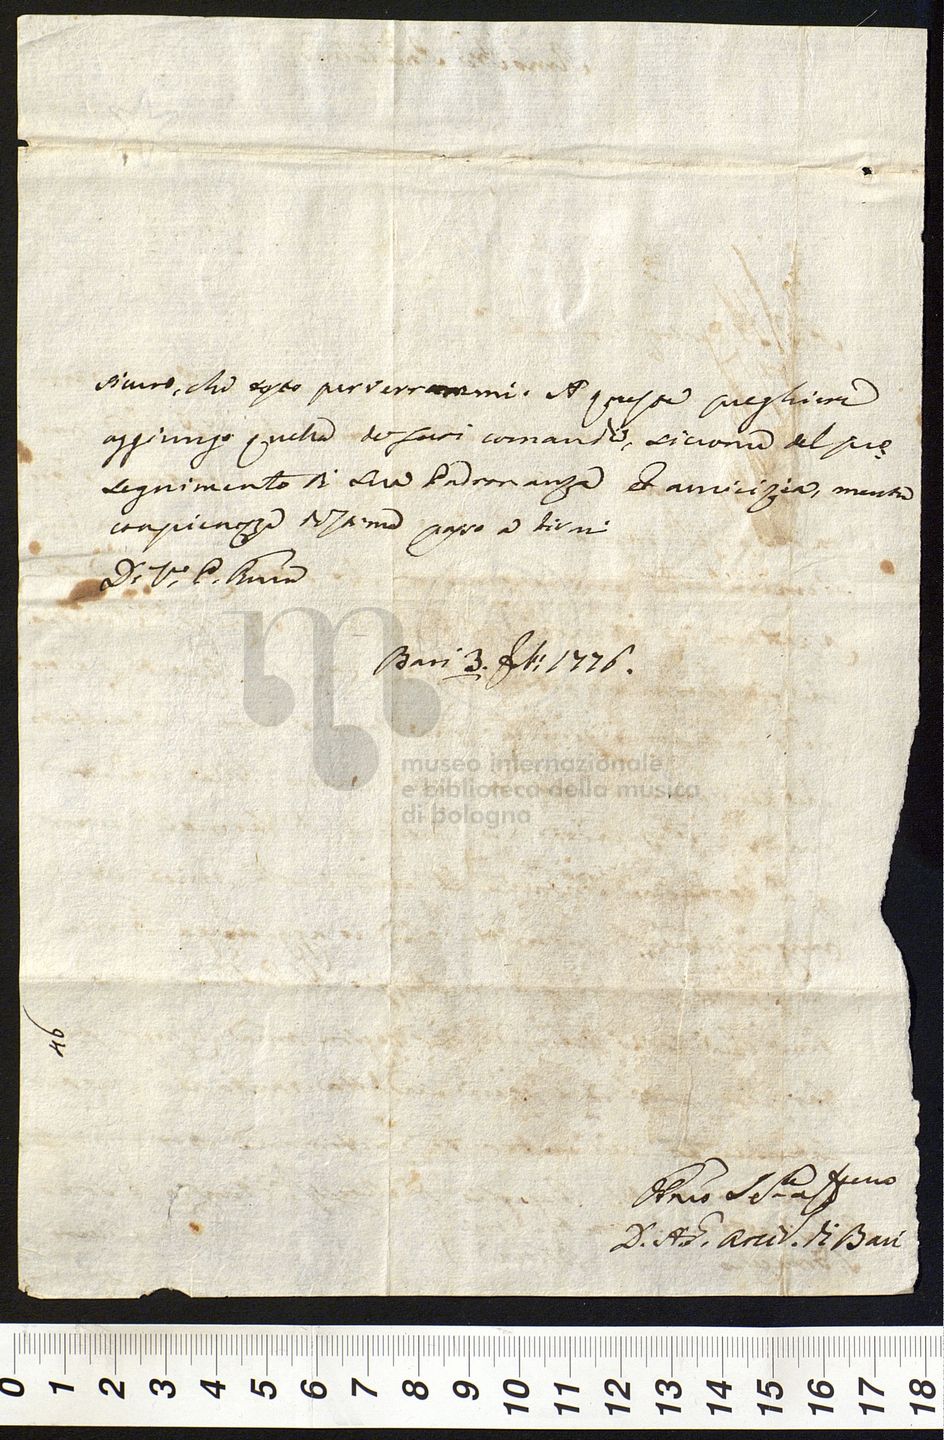 sicuro, che tosto perverrammi. A queste preghiere
aggiungo quella de suoi comandi, siccome del pro
seguimento di Sua Padronanza ed amicizia, mentre
con pienezza di stima passo a dirmi
Di V. P. Rma
Bari 3. 1776.
museo internazionale
e biblioteca della musica
di bologna
46
D. Arciv. di Bari
0 1 2 3 4 5 6 7 8 9 10 11 12 13 14 15 16 17 18